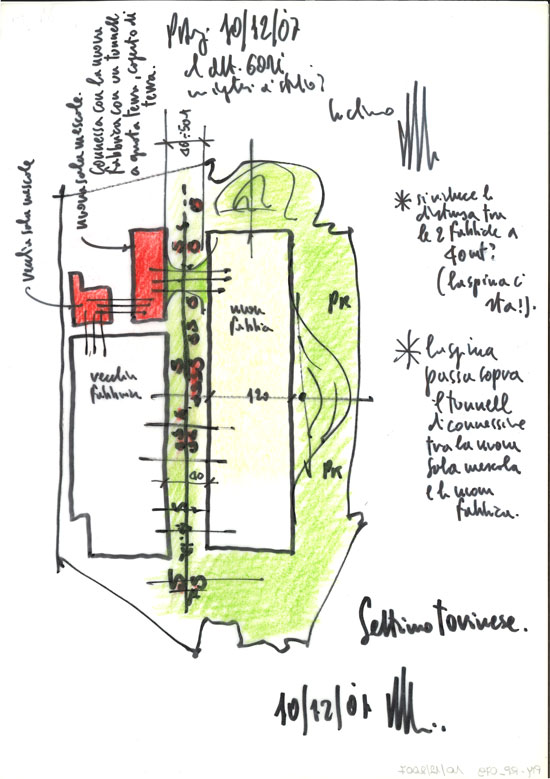 10/12/07
vecchia sala mescole
nuova sala mescole.
Connessa con la nuova
fabbrica con un tunnell
a quota terra, coperto di
terra.
40÷50 mt
Inclino
* si riduce la
distanza tra
le 2 fabbriche a
40 mt?
(la spina ci
sta!).
* la spina
passa sopra
il tunnell
di connessione
tra la nuova
sala mescola
e la nuova
fabbrica.
nuova
fabbrica
vecchia
fabbrica
120
40
PK
PK
Settimo Torinese.
10/12/07